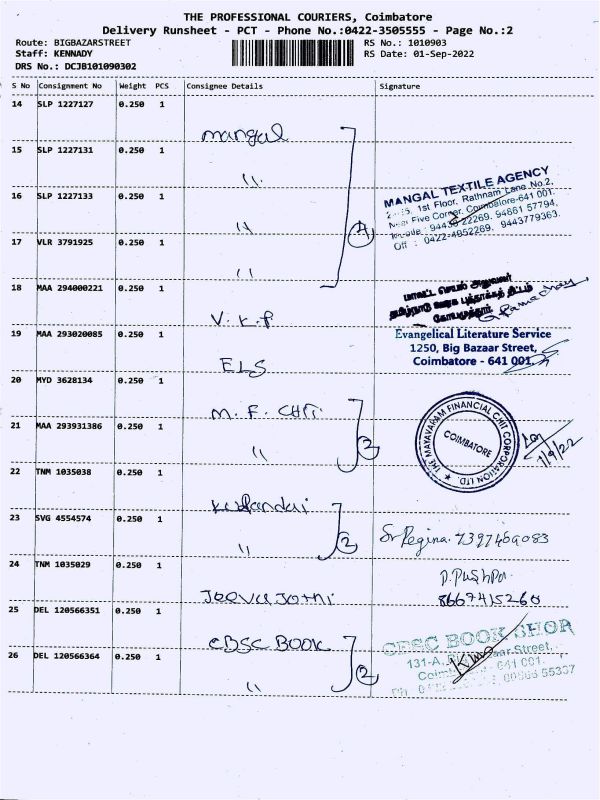 THE PROFESSIONAL COURIERS, Coimbatore
Delivery Runsheet - PCT - Phone No.:0422-3505555 - Page No.:2
Route: BIGBAZARSTREET
RS No.: 1010903
Staff: KENNADY
RS Date: 01-Sep-2022
DRS No.: DCJB101090302
S No Consignment No Weight PCS Consignee Details Signature
14 SLP 1227127 0.250 1
mangal
15 SLP 1227131 0.250 1
"
MANGAL TEXTILE AGENCY
1st Floor, Rathnam Lane No.2,
16 SLP 1227133 0.250 1
Five Corner, Coimbatore-641 001.
22269, 94861 57794,
" 4
Off : 0422-4952269, 9443779363.
17 VLR 3791925 0.250 1
"
18 MAA 294000221 0.250 1
மாவட்ட செயல் அலுவலர்
கோயமுத்தூர்
V.K.P
19 MAA 293020085 0.250 1
Evangelical Literature Service
1250, Big Bazaar Street,
Coimbatore - 641 001.
ELS
20 MYD 3628134 0.250 1
M.F. CHIT
21 MAA 293931386 0.250 1
THE MAYAVARAM FINANCIAL CHIT CORPORATION LTD.
COIMBATORE
1/9/22
" 2
22 TNM 1035038 0.250 1
Kulandai
23 SVG 4554574 0.250 1
Sr Regina. 7397469083
" 2
24 TNM 1035029 0.250 1
P. Pushpa
8667415260
Jeeva Jothi
25 DEL 120566351 0.250 1
CBSC BOOK
CBSC BOOK SHOP
131-A, Street,
26 DEL 120566364 0.250 1
641 001.
" 2